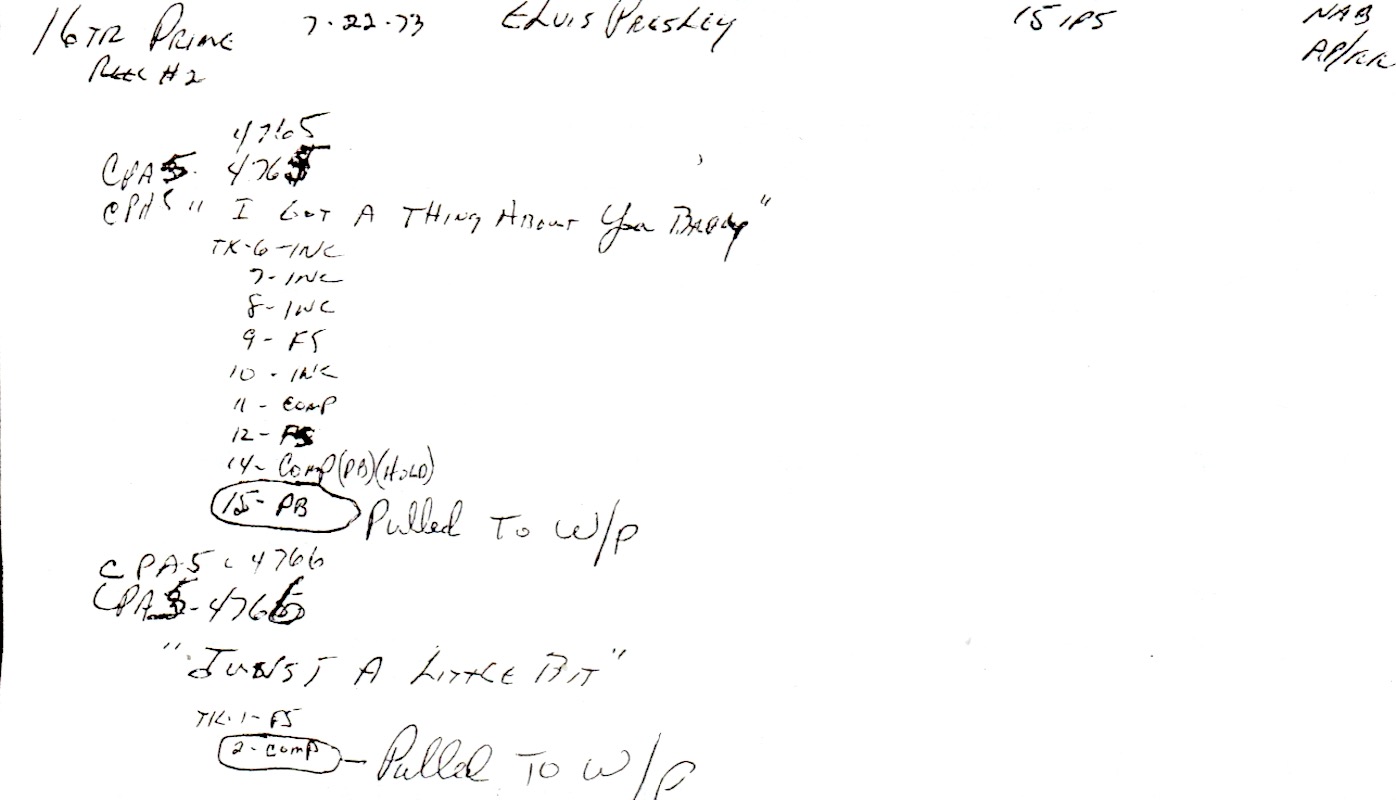 16 TR PRIME 7-22-73 ELVIS PRESLEY 15 IPS NAB
REEL #2 AP/RR
4765
CPA5- 4765
CPA5 " I GOT A THING ABOUT You BABY"
TK-6-INC
7-INC
8-INC
9-FS
10-INC
11-COMP
12-FS
14-COMP(PB)(HOLD)
15-PB Pulled To W/P
CPA5-4766
CPA5-4766
"JUNST A LITTLE BIT"
TK-1-FS
2-COMP - Pulled To W/P